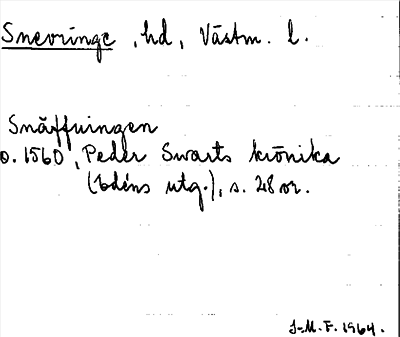 Snevringe, hd, Västm. l.
Snäffringen
o. 1560, Peder Swarts krönika
(Edéns utg.), s. 28 or.
J-M. F. 1964.